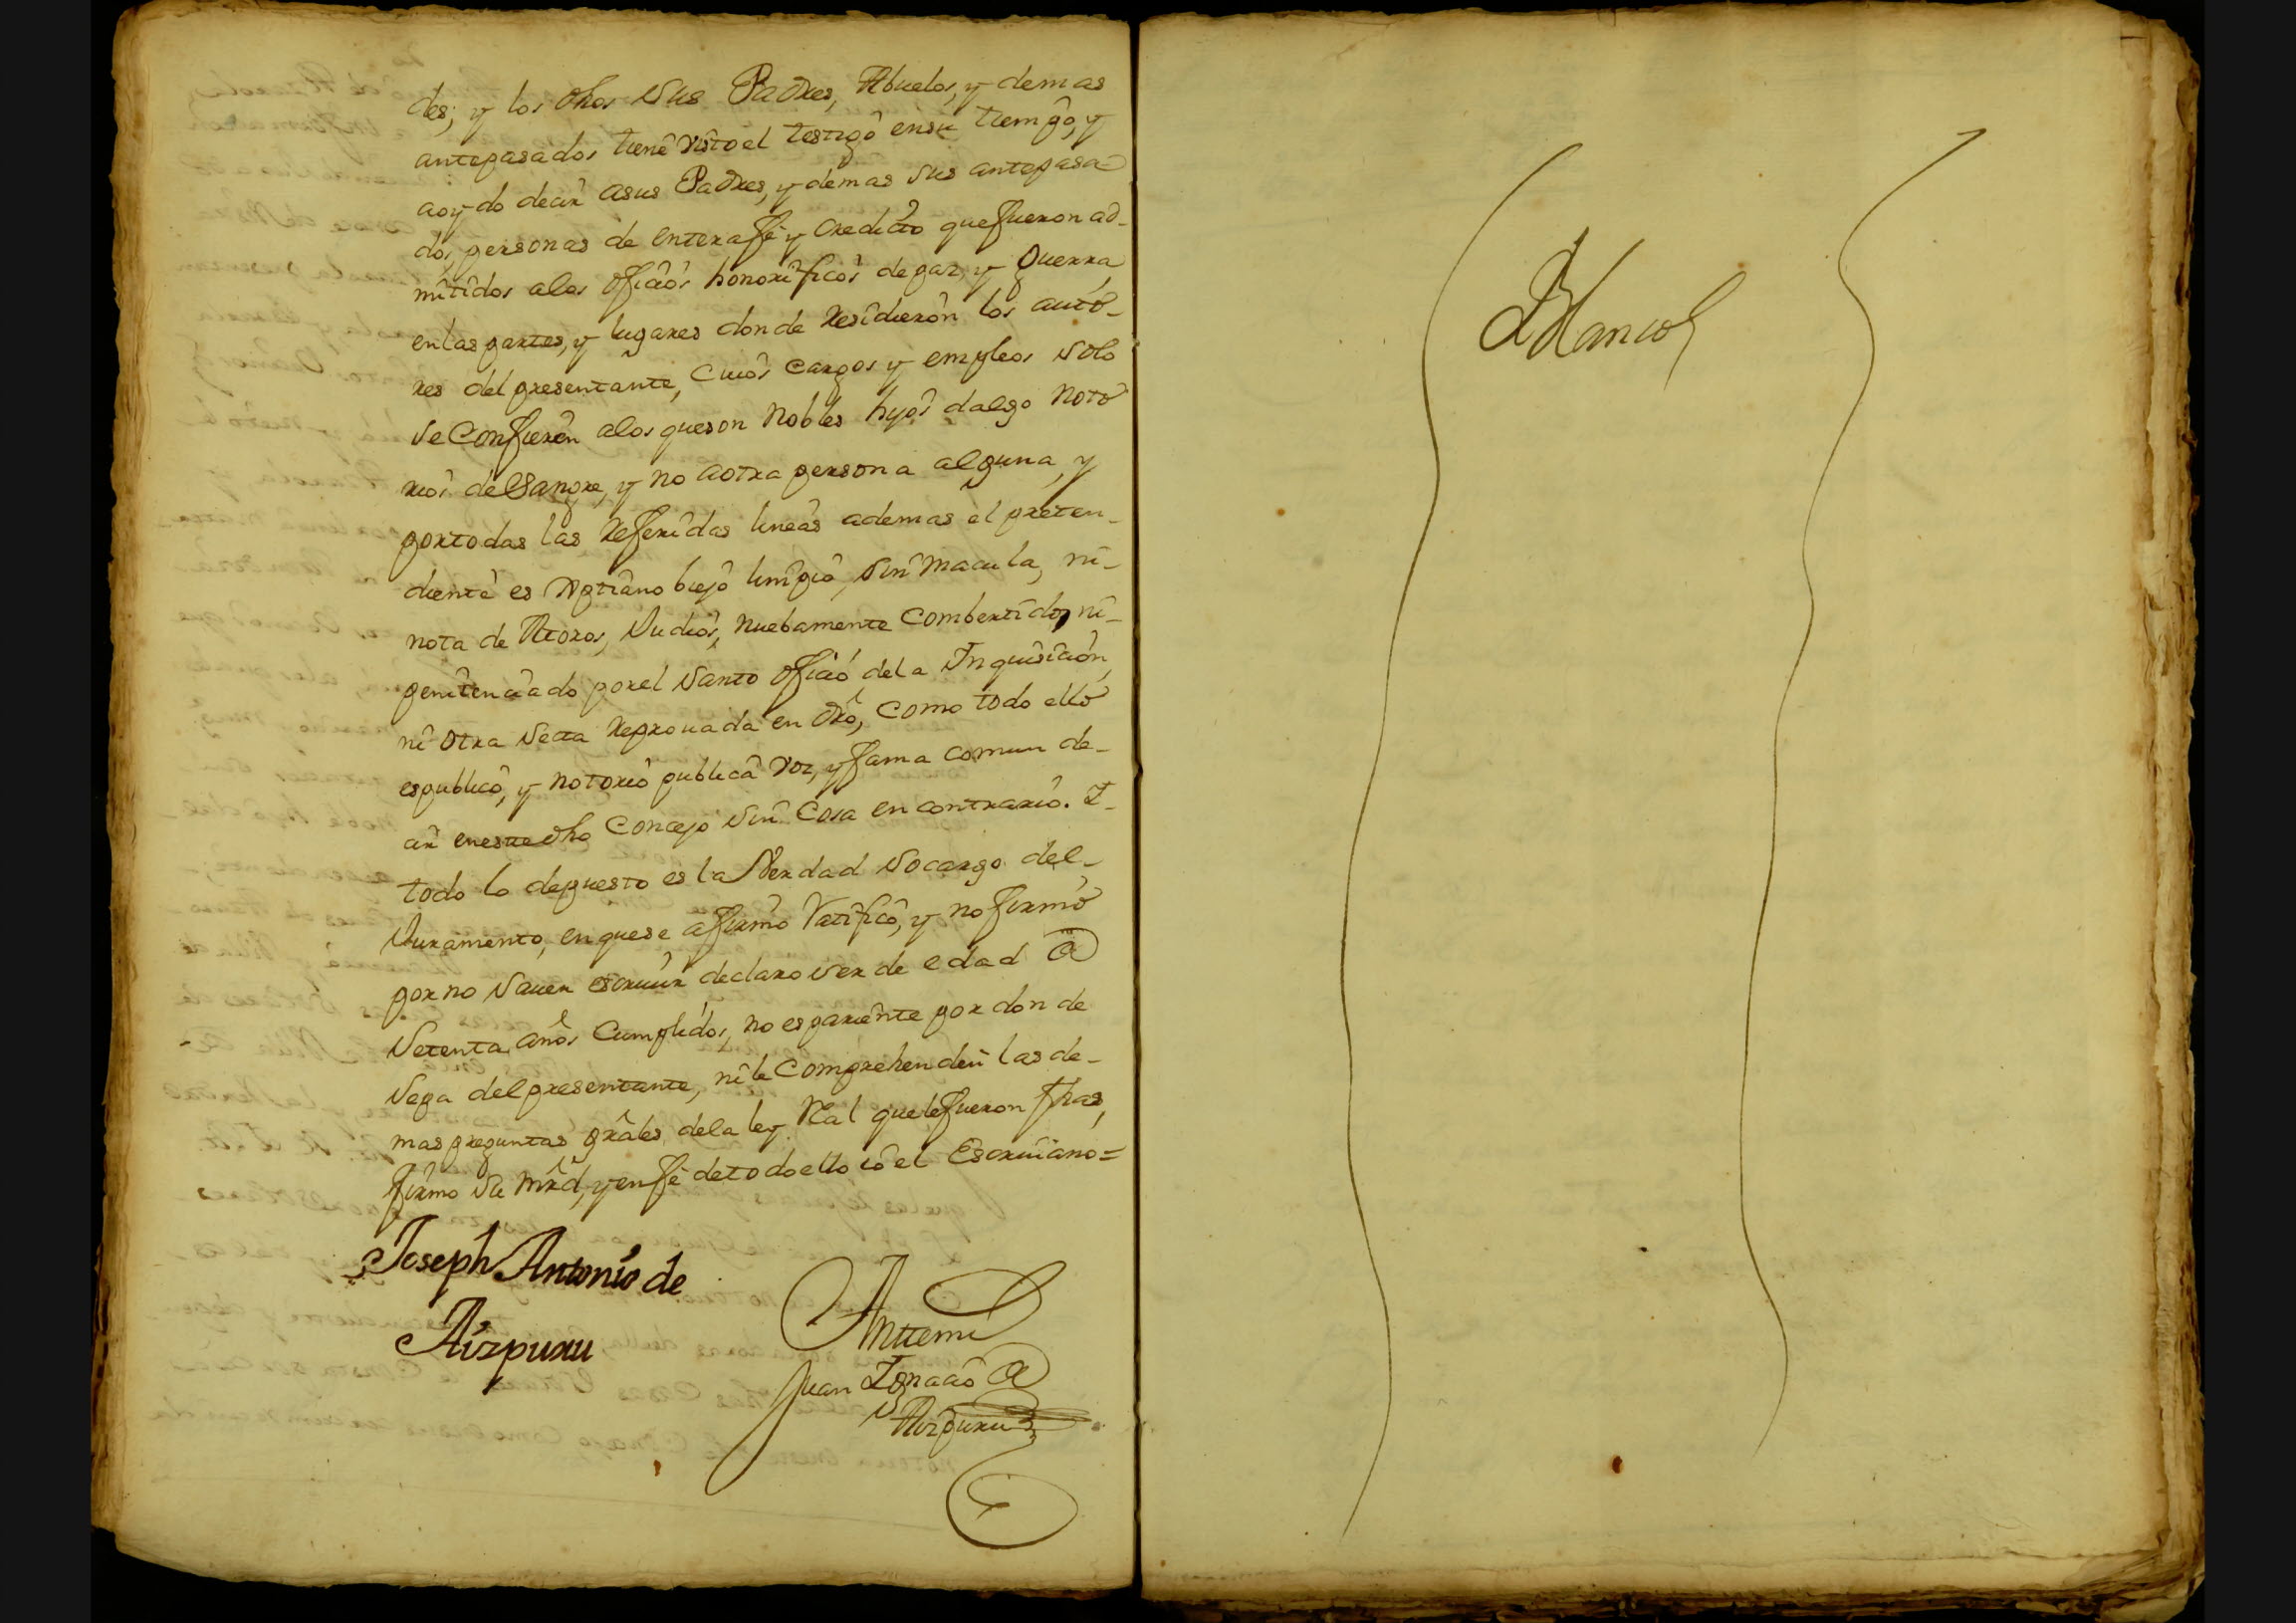 des; y los dhos sus Padres, Abuelos, y demas
antepasados tiene visto el testigo ensu tiempo, y
aoydo decir asus Padres, y demas sus antepasa-
dos, personas de entera fe y Credicto que fueron ad-
mitidos alos oficios honorificos de paz, y Guerra
en las partes, y lugares donde Residieron los auto-
res del presentante, cuios cargos y empleos solo
se Confieren alos queson Nobles hijos dalgo Noto
rios de Sangre, y no aotra persona alguna, y
portodas las Referidas lineas ademas el preten-
diente es Xptiano biejo limpio, sin Macula, ni-
nota de Moros, Judios, nuebamente Combertido, ni-
penitenciado porel Santo oficio dela Inquisicion,
ni otra Secta Reprouada en dro, como todo ello
espublico, y notorio publica voz, y fama comun de-
cir eneste dho Concejo sin Cosa en contrario. I-
todo lo depuesto es la Verdad Socargo del-
Juramento, en quese afirmo Ratifico, y no firmo
por no Sauer escriuir declaro ser de edad de
Setenta años Cumplidos, no espariente por donde
Sepa del presentante, ni le Comprehenden las de-
mas preguntas grales dela ley Real que le fueron fhas,
firmo su mrd, y enfe detodo ello io el Escriuano=
Joseph Antonio de
Aizpuru
Antemi
Juan Ignacio de
Aizpuru
Blanco